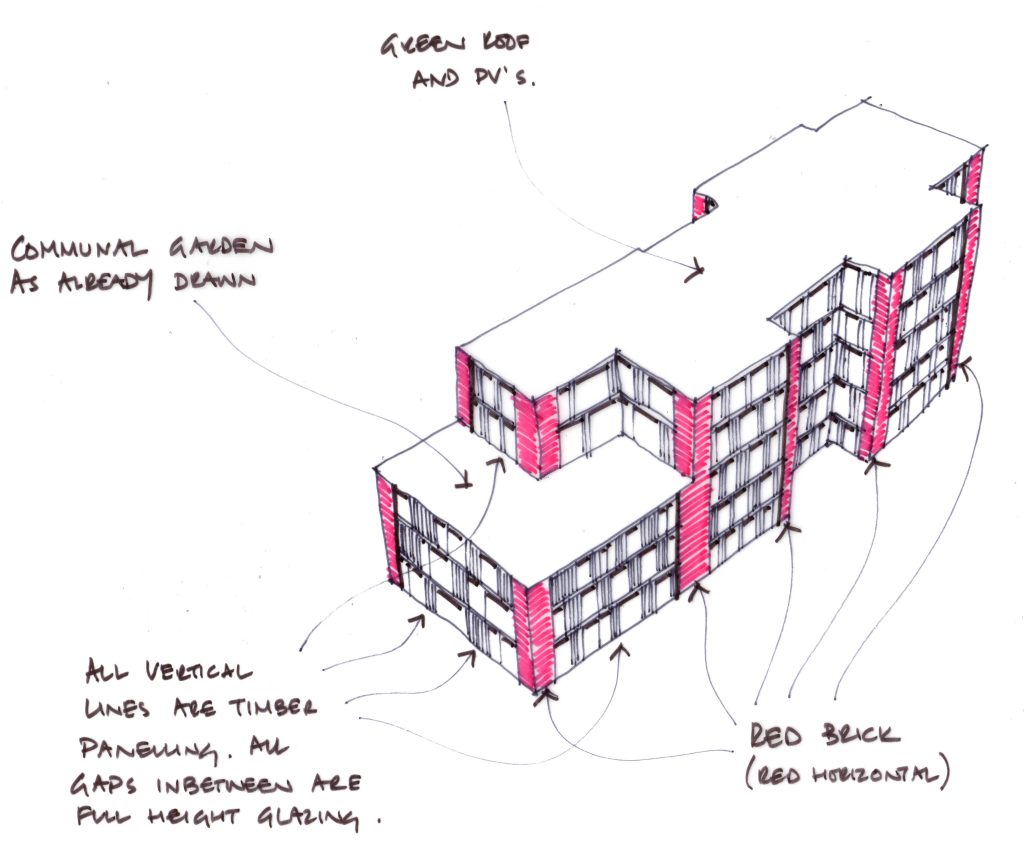 GREEN ROOF
AND PV'S.
COMMUNAL GARDEN
AS ALREADY DRAWN
ALL VERTICAL
LINES ARE TIMBER
PANELLING. ALL
GAPS INBETWEEN ARE
FULL HEIGHT GLAZING.
RED BRICK
(RED HORIZONTAL)